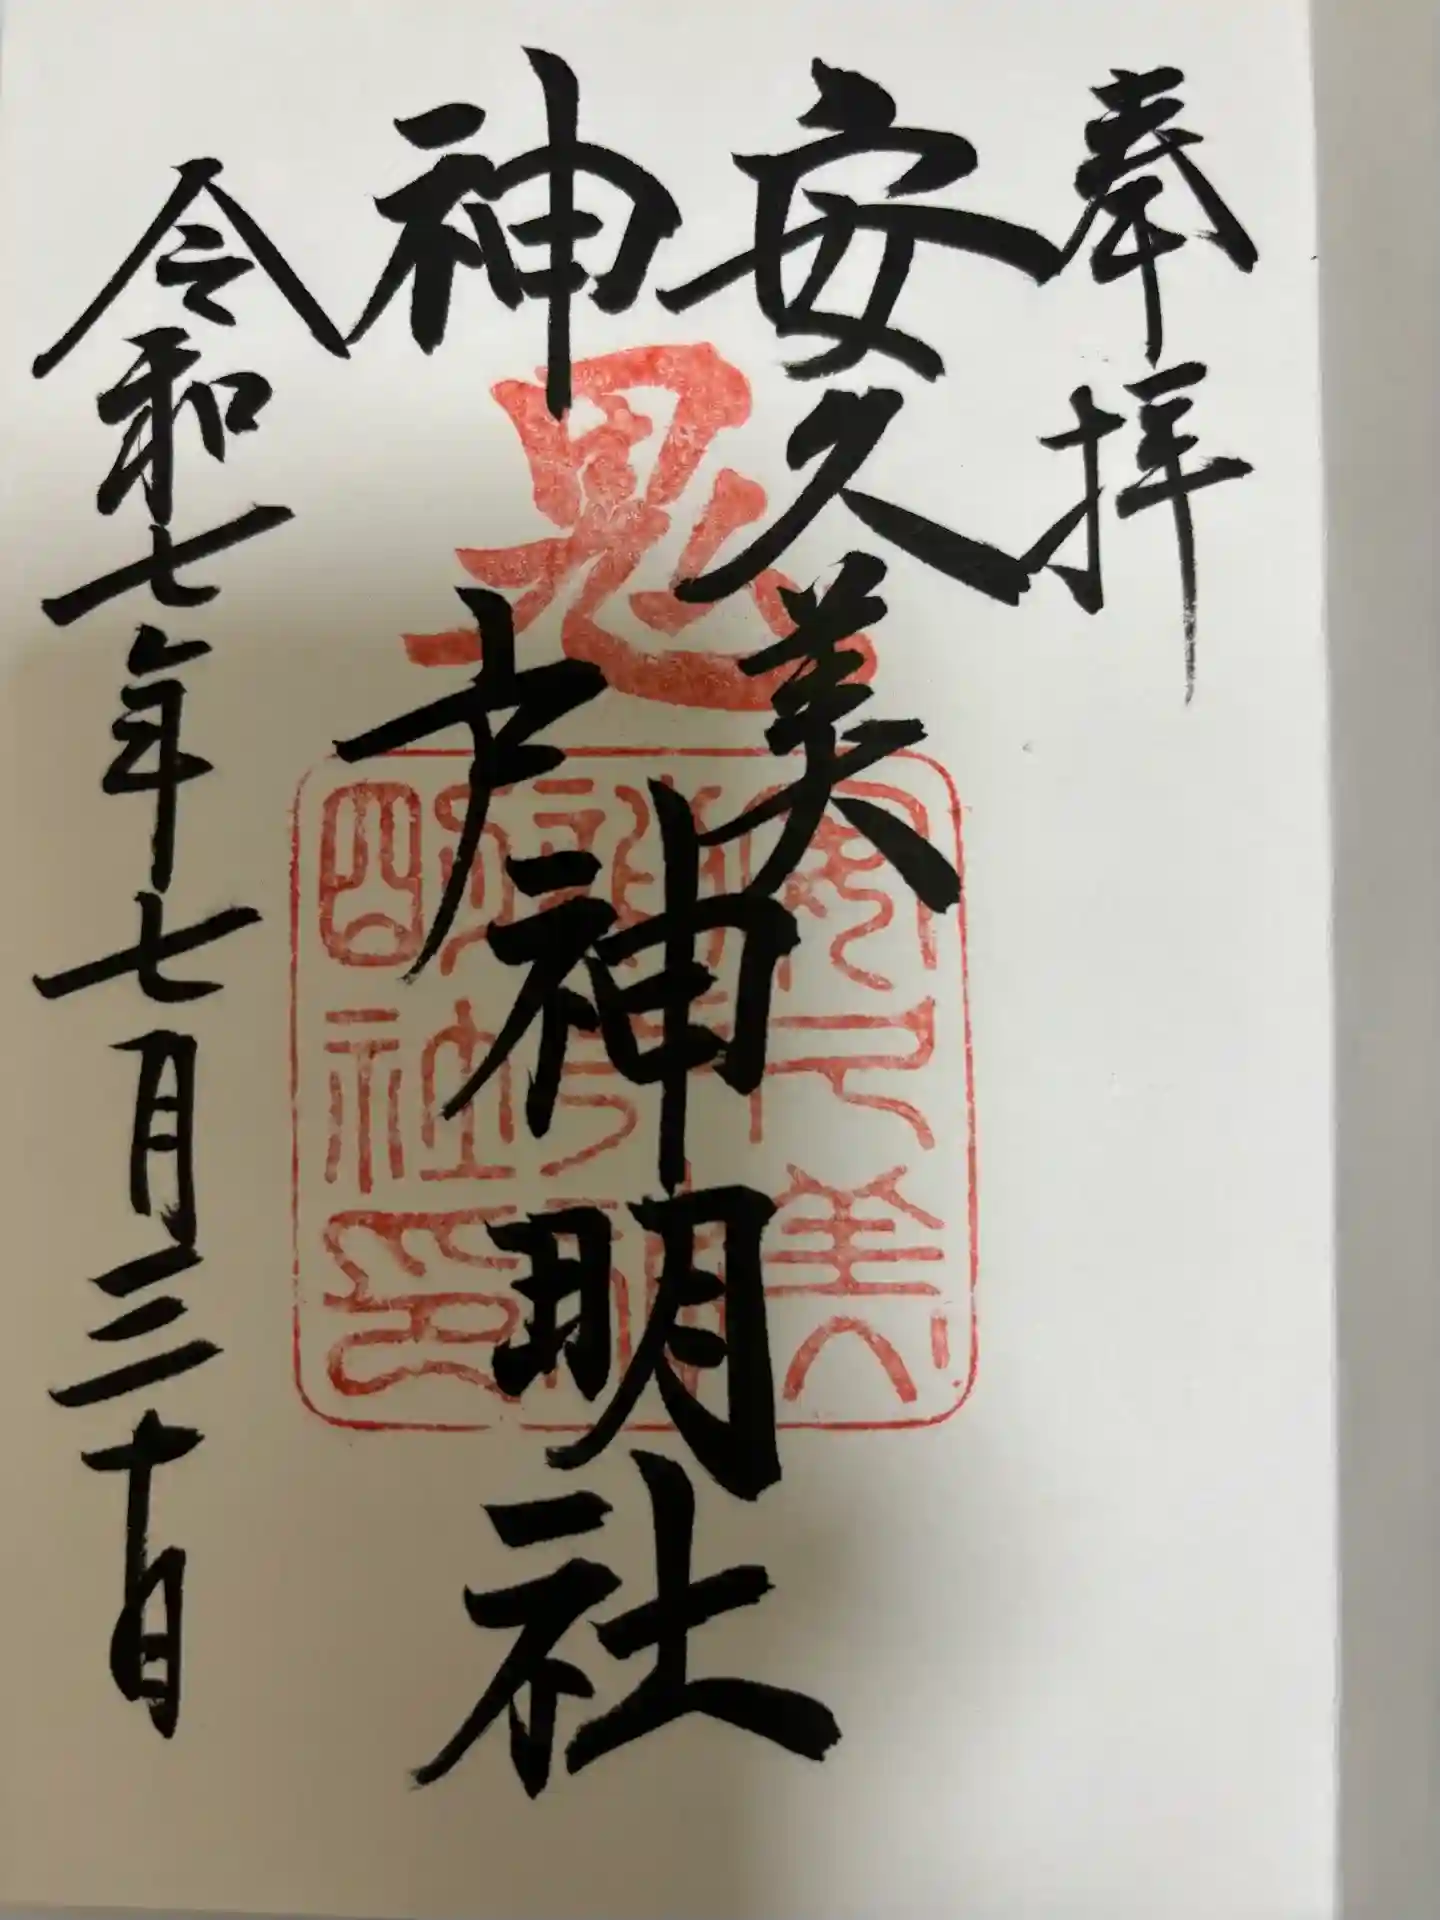 奉拝
安久美
神戸神明社
令和七年七月三十日
鬼
安久美
神戸神
明社印